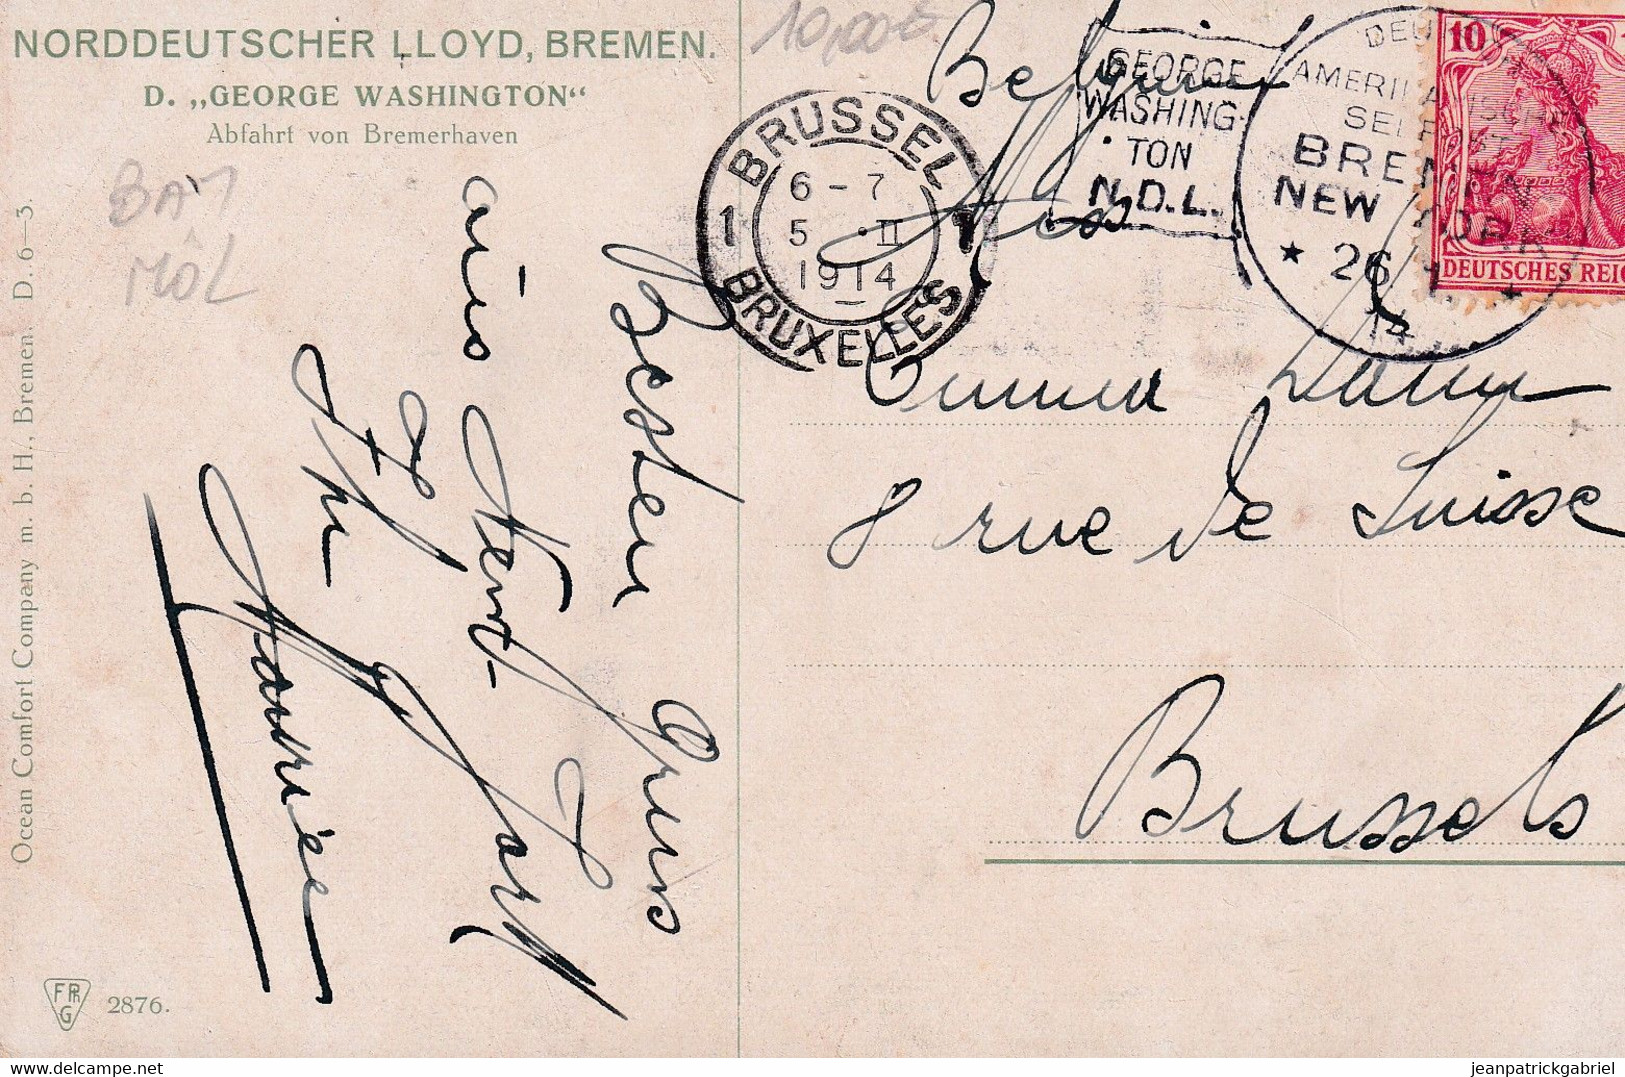 NORDDEUTSCHER LLOYD, BREMEN.
D. „GEORGE WASHINGTON“
Abfahrt von Bremerhaven
10,00€
Belgium
GEORGE
WASHING-
TON
N.D.L.
DEUTSCH
AMERIKANISCHE
SEEPOST
BREMEN
NEW YORK
* 26 1. *
14
10
DEUTSCHES REIC
BRUSSEL
6 - 7
1 5 · II 1
1914
BRUXELLES
8 rue de Suisse
Brussels
Besten Gruss
aus New-York
Ihr
Ocean Comfort Company m. b. H., Bremen. D. 6—3.
FPR
G
2876.
delcampe.net
jeanpatrickgabriel